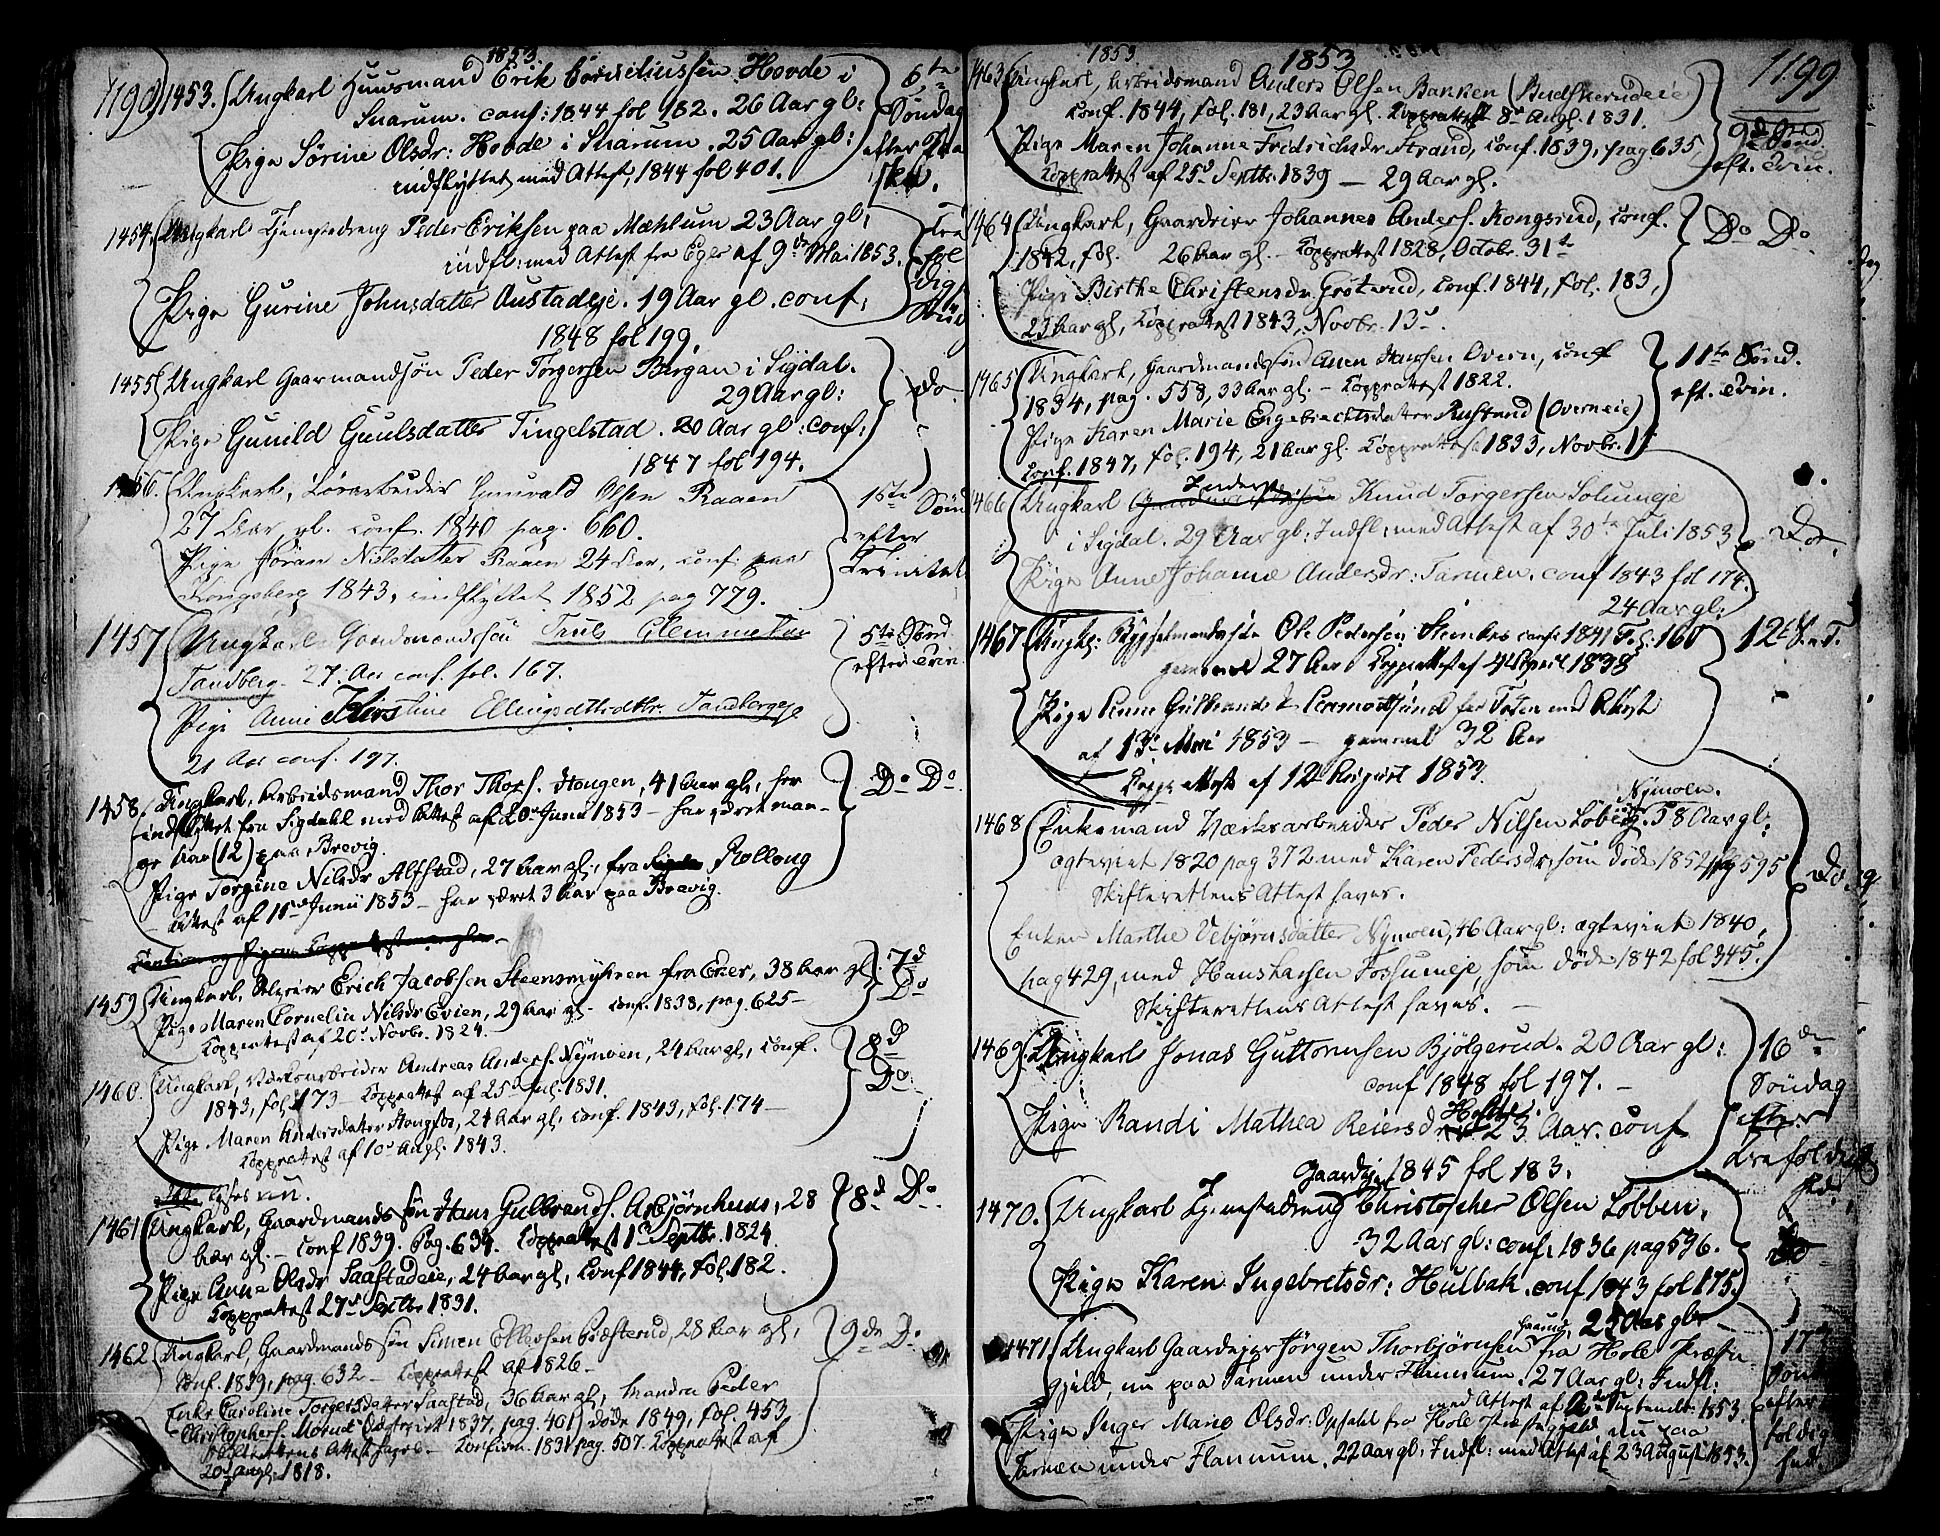 1853.
1190
1453. Ungkarl Huusmand Erik Corneliussen Hovde i
Snarum. conf: 1844 fol 182. 26 Aar gl:
Pige Sörine Olsdr: Hovde i Snarum. 25 Aar gl:
indflyttet med Attest, 1844 fol 401.
6te
Söndag
efter
1454. Ungkarl Tjenestedreng Peder Eriksen paa Mæhlum 23 Aar gl:
indfl: med Attest fra Eger af 9de Mai 1853.
Pige Gurine Johnsdatter Austadeje. 19 Aar gl. conf:
1848 fol 199.
1455 Ungkarl Gaarmandsön Peder Torgersen Bergan i Sigdal.
29 Aar gl:
Do.
Pige Gunild Guulsdatter Tingelstad. 20 Aar gl: conf:
1847 fol 194.
1456. Ungkarl, Gunvald Olsen Raaen
27 Aar gl. conf. 1840 pag. 660.
Pige Jöran Nilsdatter Raaen 24 Aar, conf: paa
Kongsberg 1843, indflyttet 1852 pag 779.
1ste Sönd
efter
Trinitat
1457 Ungkarl Gaardmandssön Truls Clemmetsen
Tandberg 27 Aar conf. fol. 167.
Pige Anne Kirstine Ellingsdtr. Tandbergeje
21 Aar conf. 197.
5te Sönd
efter Trin
1458. Ungkarl, Arbeidsmand Thor Thors. Haugen, 41 Aar gl, her
indflyttet fra Sigdahl med Attest af 20de Junii 1853 – har været
Aar (12) paa Brevig.
Pige Torgine Nilsdr Alfstad, 27 Aar gl, fra Rollong
Attest af 11te Junii 1853 – har været 3 Aar paa Brevig.
Do Do
1459 Ungkarl, Erich Jacobsen Steensmyhren fra Eker, 38 Aar gl.
Pige Maren Cornelia Nilsdr Evien, 29 Aar gl – conf. 1838, pag. 625 –
Koppattest af 20de Novbr. 1824.
7d
Do
1460. Ungkarl, Værksarbeider Andreas Anders. Nymoen, 24 Aar gl, conf.
1843, fol. 173 – Koppattest af 25de Jul. 1831.
Pige Maren Andersdatter Haugfos, 24 Aar gl, conf. 1843, fol. 174 –
Koppattest af 10de Aug. 1843.
8d
Do
1461 Ungkarl, Gaardmandssön Hans Gulbrands. Asbjörnhuus, 28
Aar gl. – conf 1839. Pag. 634. Koppattest 1ste Septbr. 1824.
Pige Anne Olsdr Saastadeie, 24 Aar gl, conf 1844, fol. 182.
Koppattest 27de Septbr 1831.
8d Do
1462 Ungkarl, Gaardmandssön Simen Præsterud, 28 Aar gl,
conf. 1839, pag. 632 – Koppattest af 1826 –
Enke Caroline Torgersdatter Saastad, 36 Aar gl, Manden Peder
Christophers. Moerud (Ægteviet 1837, pag. 461) döde 1849, fol. 453
Skifterettens Attest haves – Confirm. 1831 pag. 507. Koppattest af
20de Aug. 1818.
9de Do
1853
1853
1199
1463 Ungkarl, Arbeidsmand Anders Olsen Banken (Buskerudeie)
conf. 1844, fol. 181, 23 Aar gl. Koppattest 8de Aug. 1831.
Pige Maren Johanne Fredrichsdr Strand, conf. 1839, pag 635
Koppattest af 25de Septbr. 1839 – 29 Aar gl.
9de Sönd.
eft. Trin.
1464 Ungkarl, Gaardeier Johannes Anders. Kongsrud, conf.
1842, fol. 26 Aar gl. – Koppattest 1828, Octobr. 31te
Pige Birthe Christensdr Gröterud, conf. 1844, fol. 183,
23 Aar gl, Koppattest 1843, Novbr. 13de.
Do Do
1465 Ungkarl, Gaardmandssön Hansen Overn, conf
1834, pag. 558, 33 Aar gl. – Koppattest 1822.
Pige Karen Marie Engebrechtsdatter Rustand (Overneie)
conf. 1847, fol. 194, 21 Aar gl. Koppattest 1833, Novbr. 15
11te Sönd.
eft. Trin.
1466 Ungkarl Inderst Knud Torgersen Solumeje
i Sigdal. 29 Aar gl: Indfl: med Attest af 30te Juli 1853
Pige Anne Johanne Andersdr: Tarmen. conf 1843 fol 174.
24 Aar gl:
Do.
1467 Ungk: Ole Pedersen conf. 1841 Fol. 160
gammel 27 Aar Koppattest af 4 April 1838
Pige Anne Gulbrandsd fra Toten med Attest
af 13de Mai 1853 – gammel 32 Aar
Koppattest af 12 August 1853.
12te S.e.T.
Nymoen.
1468 Enkemand Værksarbeider Peder Nilsen 58 Aar gl:
ægteviet 1820 pag 372 med Karen Pedersdr, som döde 1852 pag 595
Skifterettens Attest haves.
Enken Marthe Vebjörnsdatter Nymoen, 46 Aar gl: ægteviet 1840,
pag 429, med Hans Hansen Fossumeje, som döde 1842 fol 345.
Skifterettens Attest haves. –
Do
1469. Ungkarl Jonas Guttormsen Bjölgerud. 20 Aar gl:
conf 1848 fol 197. –
Pige Randi Mathea Reiersdr 23 Aar. conf
1845 fol 183.
16de
Söndag
efter
Trefoldigh
hed.
1470. Ungkarl Tjenestedreng Christopher Olsen Lobben.
32 Aar gl: conf. 1836 pag 596.
Pige Karen Ingebretsdr: Hulbak. conf 1843 fol 175.
25 Aar gl:
Do
1471. Ungkarl Gaardejer Jörgen Thorbjörnsen fra Hole Præste
gjeld, nu paa Tarmen under Flannum. 27 Aar gl: Indfl:
med Attest af September 1853.
Pige Inger Marie Olsdr: Opsahl fra Hole Præstegjeld nu paa
Tarmen under Flannum. 22 Aar gl: Indfl: med Attest af 23 August 1853.
17de
Sönd
efter
foldig
hed.